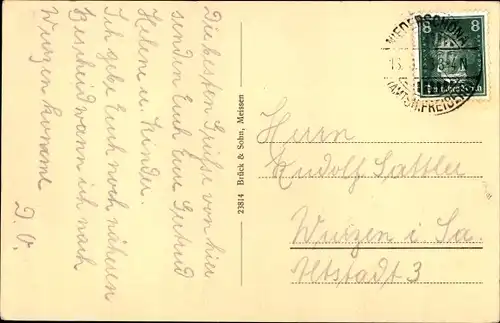 Die besten Grüße von hier
senden Euch Eure Gertrud
Helene u. Kinder.
Ich gebe Euch noch näheren
Bescheid wann ich nach
Wurzen komme
D. O.
23814 Brück & Sohn, Meissen
NIEDERSCHÖNA
(AMTSH. FREIBERG)
8 8
Deutsches Reich
Herrn
Rudolf Sattler
Wurzen i. Sa.
Altstadt 3